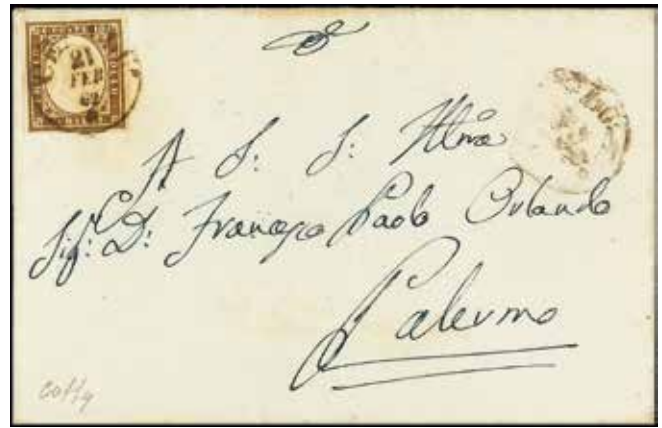 21
FEB
62
A S: S: Illma
Sig: D: Francesco Paolo Orlando
Palermo